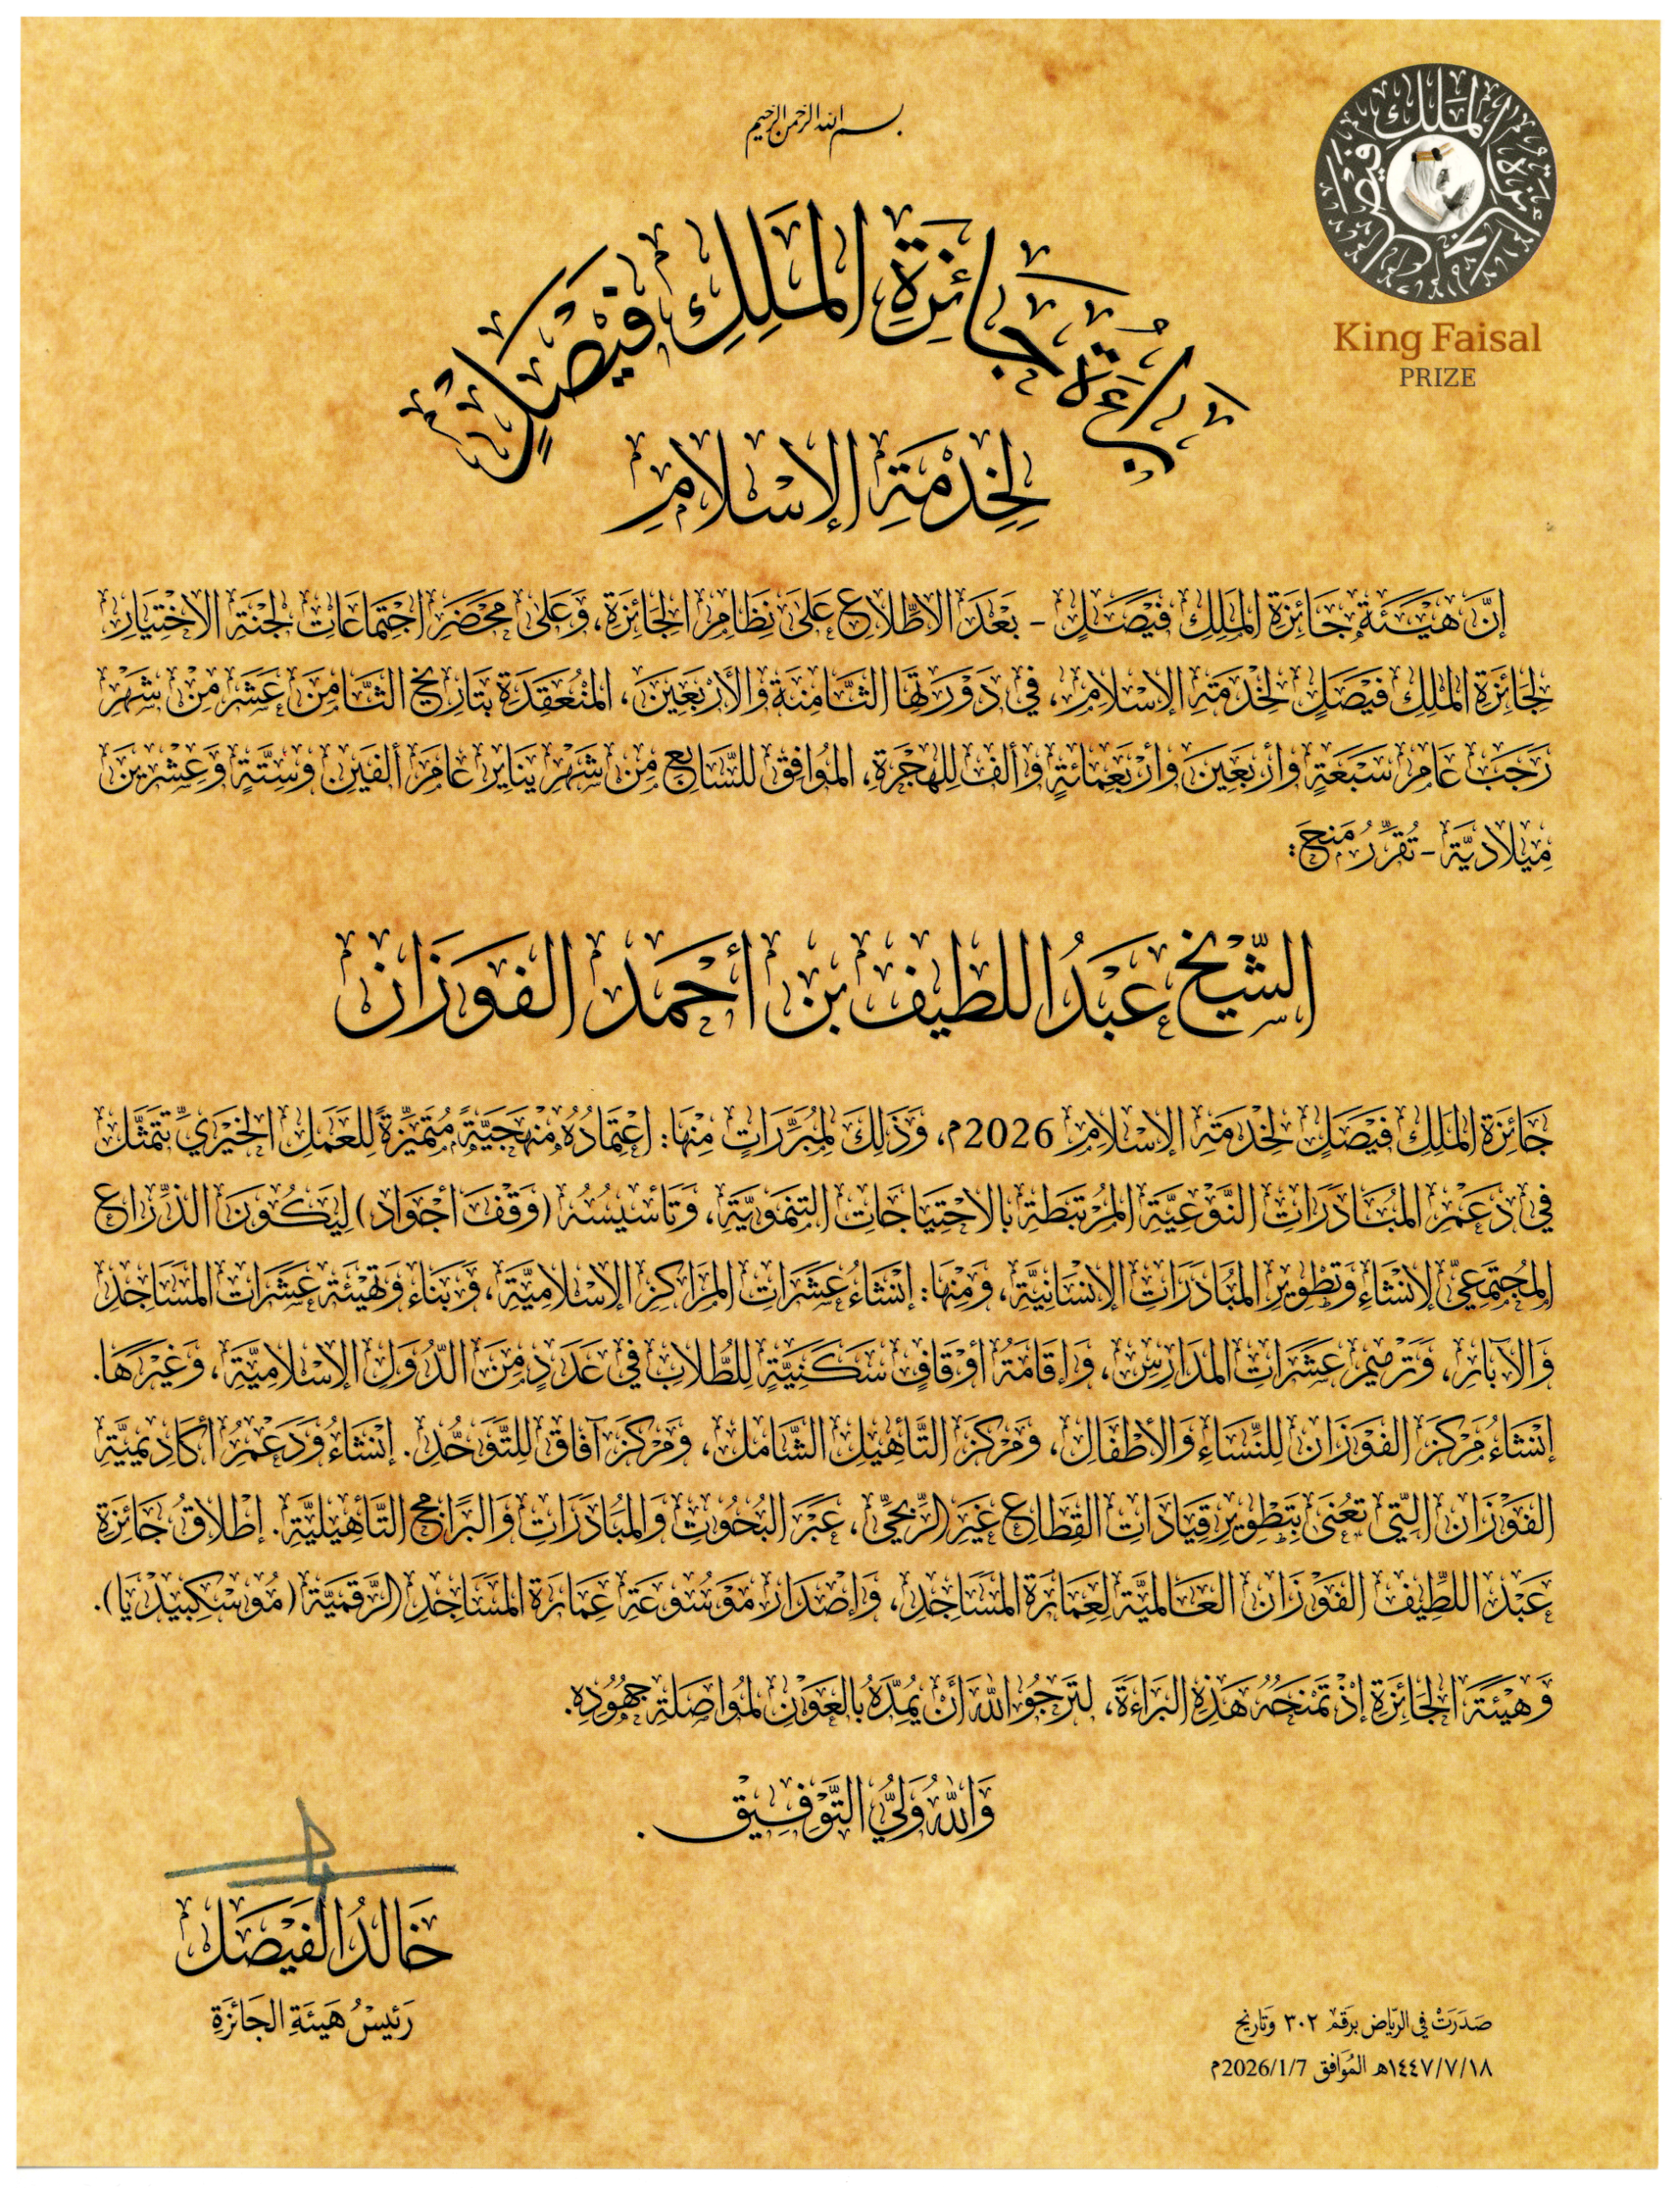 بسم الله الرحمن الرحيم
جائزة الملك فيصل
King Faisal
PRIZE
بَرَاءَةُ جَائِزَةِ المَلِكِ فَيْصَلٍ
لِخِدْمَةِ الإسْلَامِ
إنَّ هَيْئَةَ جَائِزَةِ المَلِكِ فَيْصَلٍ - بَعْدَ الاطِّلَاعِ عَلَى نِظَامِ الجَائِزَةِ، وَعَلَى مَحْضَرِ اجْتِمَاعَاتِ لَجْنَةِ الاخْتِيَارِ
لِجَائِزَةِ المَلِكِ فَيْصَلٍ لِخِدْمَةِ الإسْلَامِ، فِي دَوْرَتِهَا الثَّامِنَةِ وَالأَرْبَعِينَ، المُنْعَقِدَةِ بِتَارِيخِ الثَّامِنَ عَشَرَ مِنْ شَهْرِ
رَجَبَ عَامَ سَبْعَةٍ وَأرْبَعِينَ وَأرْبَعِمِائَةٍ وَألْفٍ لِلهِجْرَةِ، المُوَافِقِ لِلسَّابِعِ مِنْ شَهْرِ يَنَايِرَ عَامَ ألْفَيْنِ وَسِتَّةٍ وَعِشْرِينَ
مِيلَادِيَّةً - تُقَرِّرُ مَنْحَ:
الشَّيْخ عَبْدُ اللطِيف بن أحْمَد الفَوزَان
جَائِزَةَ المَلِكِ فَيْصَلٍ لِخِدْمَةِ الإسْلَامِ 2026م، وَذَلِكَ لِمُبَرِّرَاتٍ مِنْهَا: اعْتِمَادُهُ مَنْهَجِيَّةً مُتَمَيِّزَةً لِلعَمَلِ الخَيْرِيِّ تَتَمَثَّلُ
فِي دَعْمِ المُبَادَرَاتِ النَّوْعِيَّةِ المُرْتَبِطَةِ بِالاحْتِيَاجَاتِ التَّنْمَوِيَّةِ، وَتَأسِيسُهُ (وَقْفَ أجْوَاد) لِيَكُونَ الذِّرَاعَ
المُجْتَمَعِيَّ لإنْشَاءِ وَتَطْوِيرِ المُبَادَرَاتِ الإنْسَانِيَّةِ، وَمِنْهَا: إنْشَاءُ عَشَرَاتِ المَرَاكِزِ الإسْلَامِيَّةِ، وَبِنَاءُ وَتَهْيِئَةُ عَشَرَاتِ المَسَاجِدِ
وَالآبَارِ، وَتَرْمِيمُ عَشَرَاتِ المَدَارِسِ، وَإقَامَةُ أوْقَافٍ سَكَنِيَّةٍ لِلطُّلَابِ فِي عَدَدٍ مِنَ الدُّوَلِ الإسْلَامِيَّةِ، وَغَيْرِهَا.
إنْشَاءُ مَرْكَزِ الفَوْزَانِ لِلنِّسَاءِ وَالأطْفَالِ، وَمَرْكَزِ التَّأهِيلِ الشَّامِلِ، وَمَرْكَزِ آفَاق لِلتَّوَحُّدِ. إنْشَاءُ وَدَعْمُ أكَادِيمِيَّةِ
الفَوْزَانِ الَّتِي تُعْنَى بِتَطْوِيرِ قِيَادَاتِ القِطَاعِ غَيْرِ الرِّبْحِيِّ، عَبْرَ البُحُوثِ وَالمُبَادَرَاتِ وَالبَرَامِجِ التَّأهِيلِيَّةِ. إطْلَاقُ جَائِزَةِ
عَبْدِ اللطِيفِ الفَوْزَانِ العَالَمِيَّةِ لِعِمَارَةِ المَسَاجِدِ، وَإصْدَارُ مَوْسُوعَةِ عِمَارَةِ المَسَاجِدِ الرَّقَمِيَّةِ (مُوسْكِبِيدْيَا).
وَهَيْئَةُ الجَائِزَةِ إذْ تَمْنَحُهُ هَذِهِ البَرَاءَةَ، لَتَرْجُو اللهَ أَنْ يُمِدَّهُ بِالعَوْنِ لِمُوَاصَلَةِ جُهُودِهِ.
وَاللهُ وَلِيُّ التَّوْفِيقِ.
خَالِدُ الفَيْصَل
رَئِيسُ هَيْئَةِ الجَائِزَةِ
صَدَرَتْ فِي الرِّيَاض بِرَقَم ٣٠٢ وَتَارِيخ
١٤٤٧/٧/١٨هـ المُوَافِق 2026/1/7م